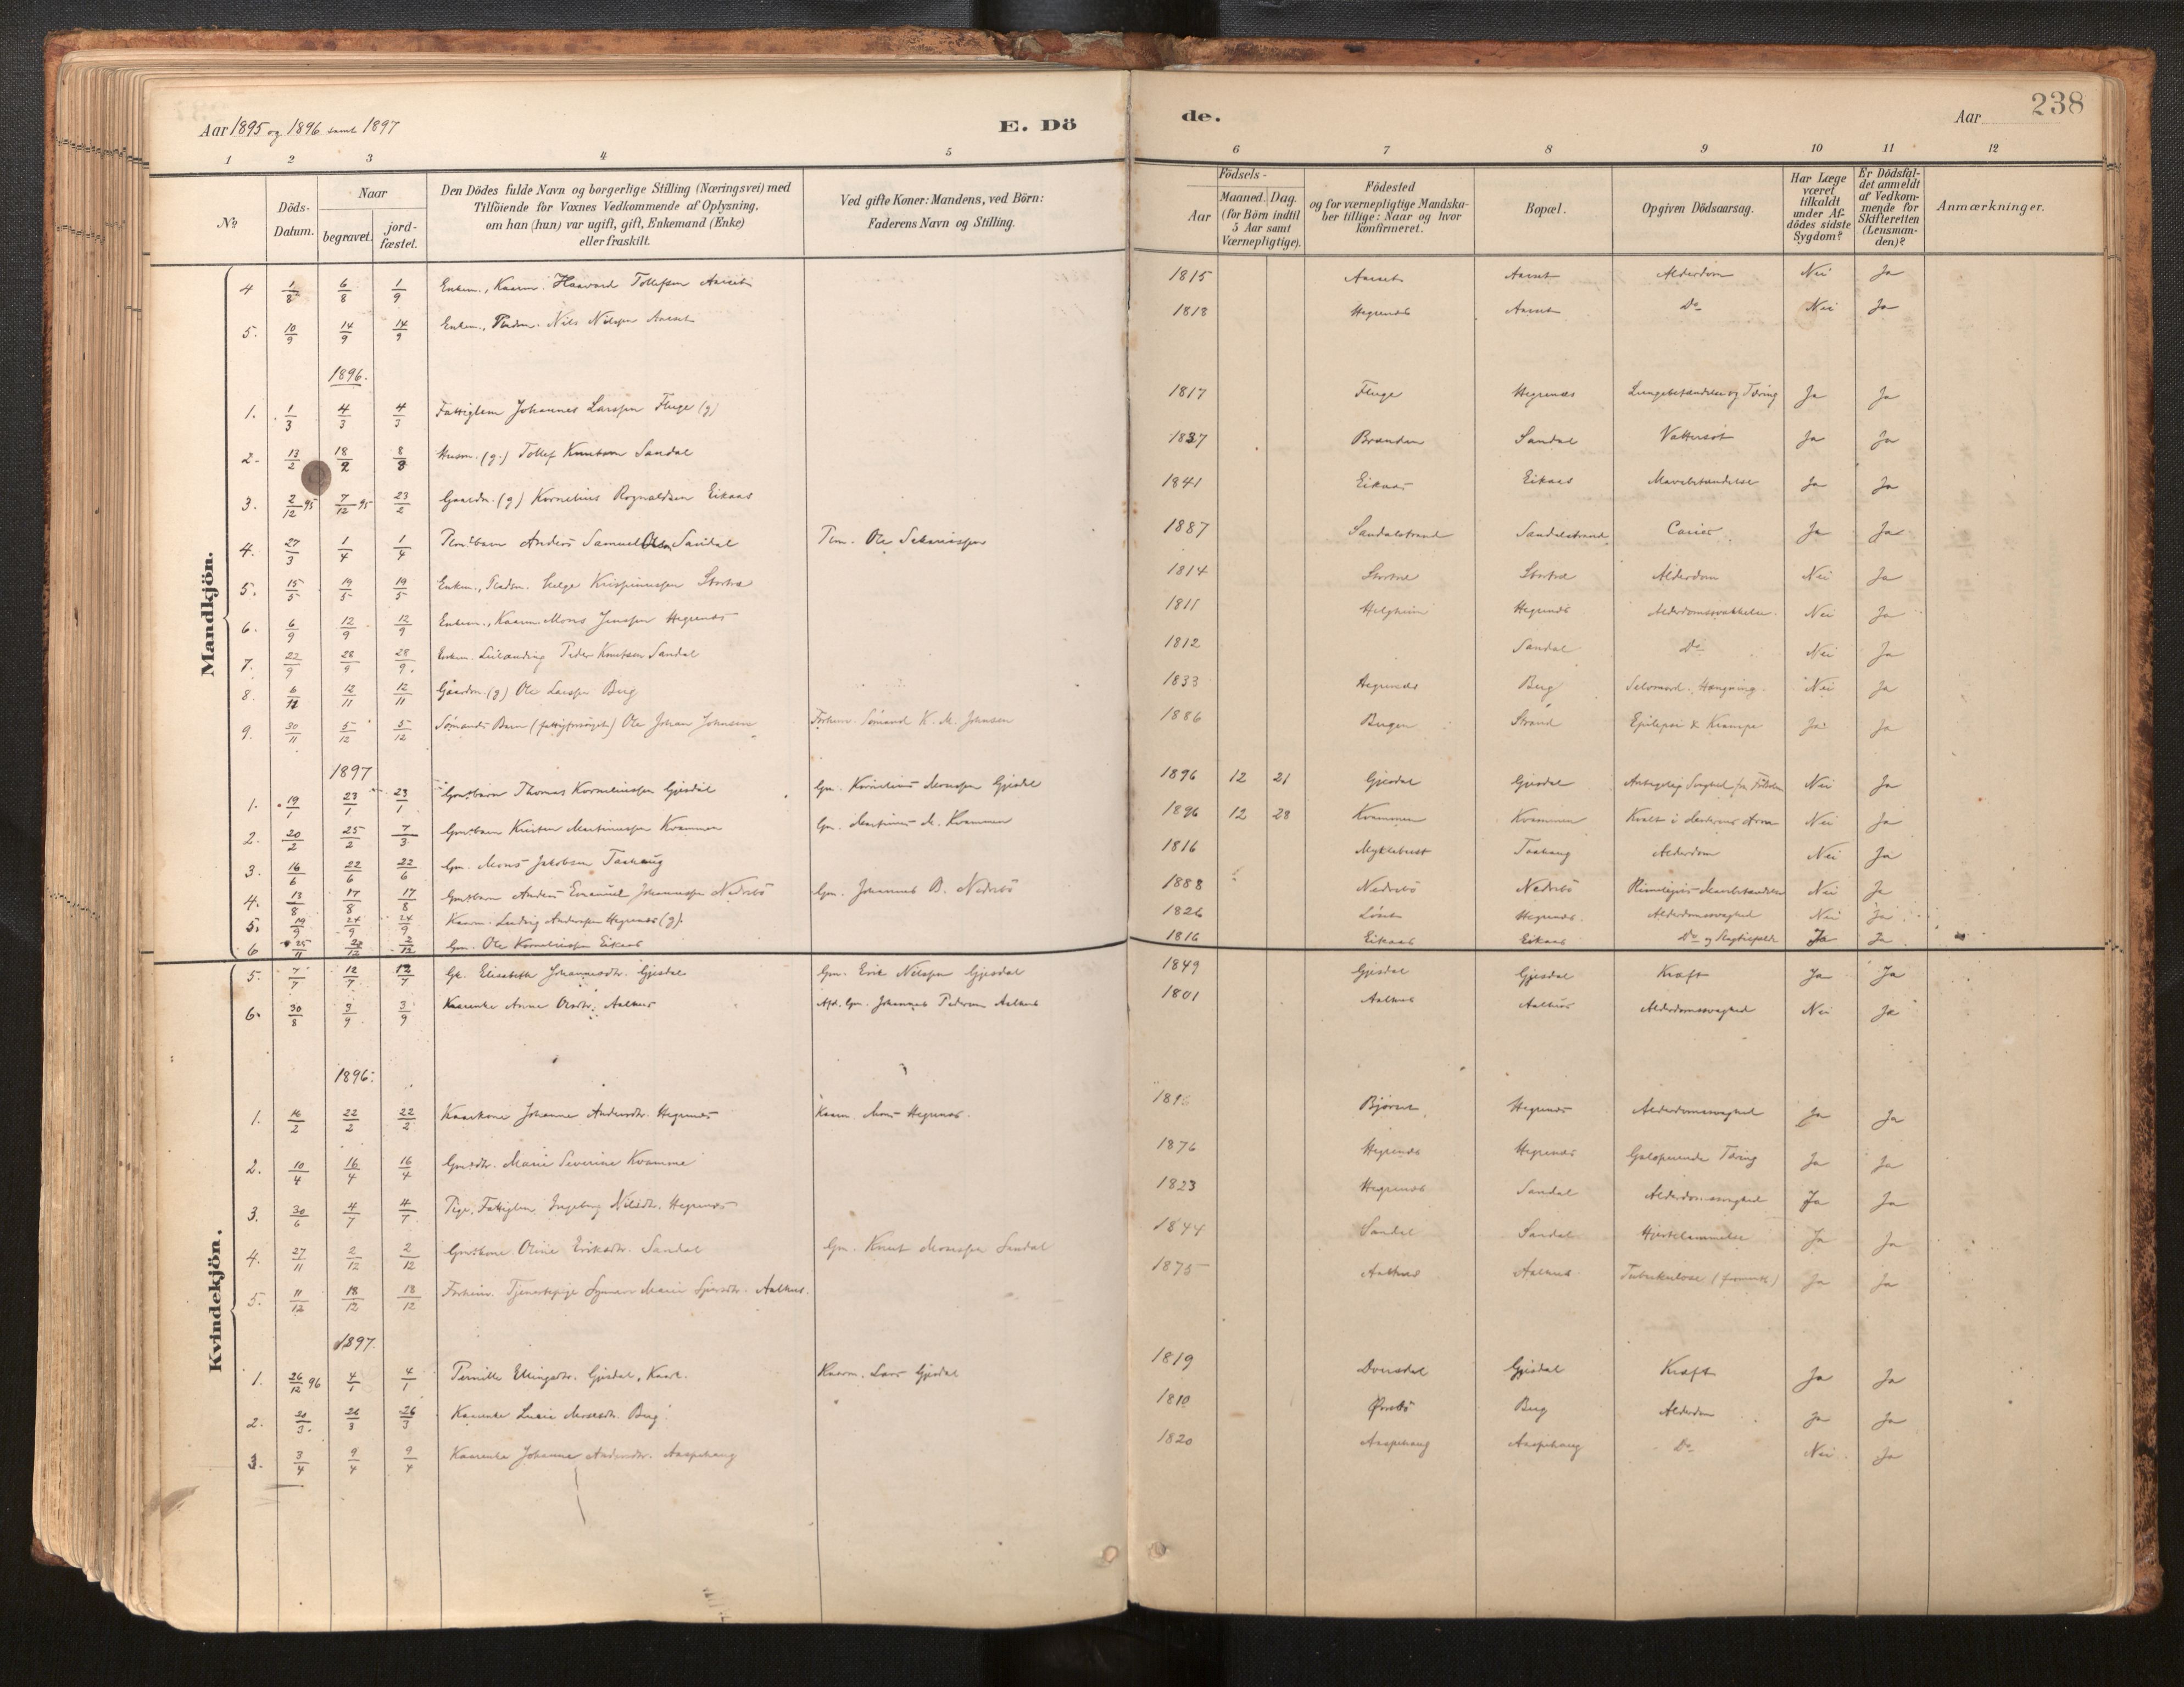 238
Aar 1895 og 1896 samt 1897 E. Dö de. Aar
1 2 3 4 5 6 7 8 9 10 11 12
No. Döds-Datum. Naar begravet. jordfæstet. Den Dödes fulde Navn og borgerlige Stilling (Næringsvei) med Tilföiende for Voxnes Vedkommende af Oplysning, om han (hun) var ugift, gift, Enkemand (Enke) eller fraskilt. Ved gifte Koner: Mandens, ved Börn: Faderens Navn og Stilling. Födsels- Aar Maaned. Dag. (for Börn indtil 5 Aar samt Værnepligtige). Födested og for værnepligtige Mandskaber tillige: Naar og hvor konfirmeret. Bopæl. Opgiven Dödsaarsag. Har Læge været tilkaldt under Afdödes sidste Sygdom? Er Dödsfaldet anmeldt af Vedkommende for Skifteretten (Lensmanden)? Anmærkninger.
Mandkjön.
4 1/8 6/8 1/9 Enkem., Kaarm. Haavard Tollefsen Aarset 1815 Aarset Aarset Alderdom Nei Ja
5. 10/9 14/9 14/9 Enkem., Nils Nilssen Aarset 1818 Hegrenæs Aarset Do Nei Ja
1896.
1. 1/3 4/3 4/3 Fattiglem Johannes Larssen Fluge (g) 1817 Fluge Hegrenæs Lungebetændelse og Tæring Ja Ja
2. 13/2 18/2 8/3 Husm. (g.) Tollef Knutsen Sandal 1837 Branden Sandal Vattersot Ja Ja
3. 2/12 95 7/12 95 23/2 Gaardm. (g) Kornelius Rognaldsen Eikaas 1841 Eikaas Eikaas Mavebetændelse Ja Ja
4. 27/3 1/4 1/4 Anders Samuel Olsen Sandal Ole 1887 Sandalstrand Sandalstrand Caries Ja Ja
5. 15/5 19/5 19/5 Enkem., Helge Krispinussen Stortræ 1814 Stortræ Stortræ Alderdom Nei Ja
6. 6/9 12/9 12/9 Enkem., Kaarm. Mons Jenssen Hegrenæs 1811 Helgheim Hegrenæs Alderdomssvækkelse Nei Ja
7. 22/9 28/9 28/9. Enkem. Leilænding Peder Knutsen Sandal 1812 Sandal Do Nei Ja
8. 6/11 12/11 12/11 Gaardm. (g) Ole Larssen Berg 1833 Hegrenæs Berg Selvmord. Hængning. Nei Ja
9. 30/11 5/12 5/12 Sømands Barn (fattigforsørget) Ole Johan Johnsen Forhenv. Sømand K. M. Johnsen 1886 Bergen Strand Epilepsi & Krampe Ja Ja
1897
1. 19/1 23/1 23/1 Gmdsbarn Thomas Korneliussen Gjesdal Gm. Kornelius Monssen Gjesdal 1896 12 21 Gjesdal Gjesdal Antagelig Svaghed fra Fødselen Nei Ja
2. 20/2 25/2 7/3 Gmdsbarn Kristen Martinussen Kvammen Gm. Martinus M. Kvammen 1896 12 28 Kvammen Kvammen Kvalt i Moderens Arme Nei Ja
3. 16/6 22/6 22/6 Gm. Mons Jakobsen Taahaug 1816 Myklebust Taahaug Alderdom Nei Ja
4. 13/8 17/8 17/8 Gmdsbarn Anders Emanuel Johannessen Nedrebö Gm. Johannes B. Nedrebö 1888 Nedrebö Nedrebö Rimeligvis Mavebetændelse Nei Ja
5. 19/9 24/9 24/9 Kaarm. Ludvig Anderssen Hegrenæs (g). 1826 Løset Hegrenæs. Alderdomssvaghed Nei Ja
6 25/11 2/12 2/12 Gm. Ole Korneliussen Eikaas 1816 Eikaas Eikaas Do og Slagtilfælde Ja Ja
Kvindekjön.
5. 7/7 12/7 12/7 Gk. Elisabeth Johannesdtr. Gjesdal Gm. Erik Nilssen Gjesdal 1849 Gjesdal Gjesdal Kræft Ja Ja
6. 30/8 3/9 3/9 Kaarenke Anne Olsdtr. Aalhus Afd. Gm. Johannes Pedersen Aalhus 1801 Aalhus Aalhus Alderdomssvaghed Nei Ja
1896.
1. 16/2 22/2 22/2 Kaarkone Johanne Andersdtr. Hegrenæs Kaarm. Mons Hegrenæs. 1816 Bjørset Hegrenæs Alderdomssvaghed Ja Ja
2. 10/4 16/4 16/4 Gmsdtr. Marie Severine Kvamme 1876 Hegrenæs Hegrenæs Galoperende Tæring Ja Ja
3. 30/6 4/7 4/7 Pige, Fattiglem Ingeborg Nilsdtr. Hegrenæs 1823 Hegrenæs Sandal Alderdomssvaghed Ja Ja
4. 27/11 2/12 2/12 Gmdskone Oline Eriksdtr. Sandal Gm. Knut Monssen Sandal 1844 Sandal Sandal Hjertelammelse Ja Ja
5. 11/12 18/12 18/12 Forhenv. Tjenestepige Synneve Marie Sjursdtr. Aalhus. 1875 Aalhus Aalhus Tuberkulose Ja Ja
1897.
1. 26/12 96 4/1 4/1 Pernille Ellingsdtr. Gjesdal, Kaark. Kaarm. Lars Gjesdal 1819 Dvergsdal Gjesdal Kræft Ja Ja
2. 20/3. 26/3 26/3 Kaarenke Lucie Monsdtr. Berg 1810 Ørrebö Berg Alderdom Ja Ja
3. 3/4 9/4 9/4 Kaarenke Johanne Andersdtr. Aaspehaug 1820 Aaspehaug Aaspehaug Do Nei Ja